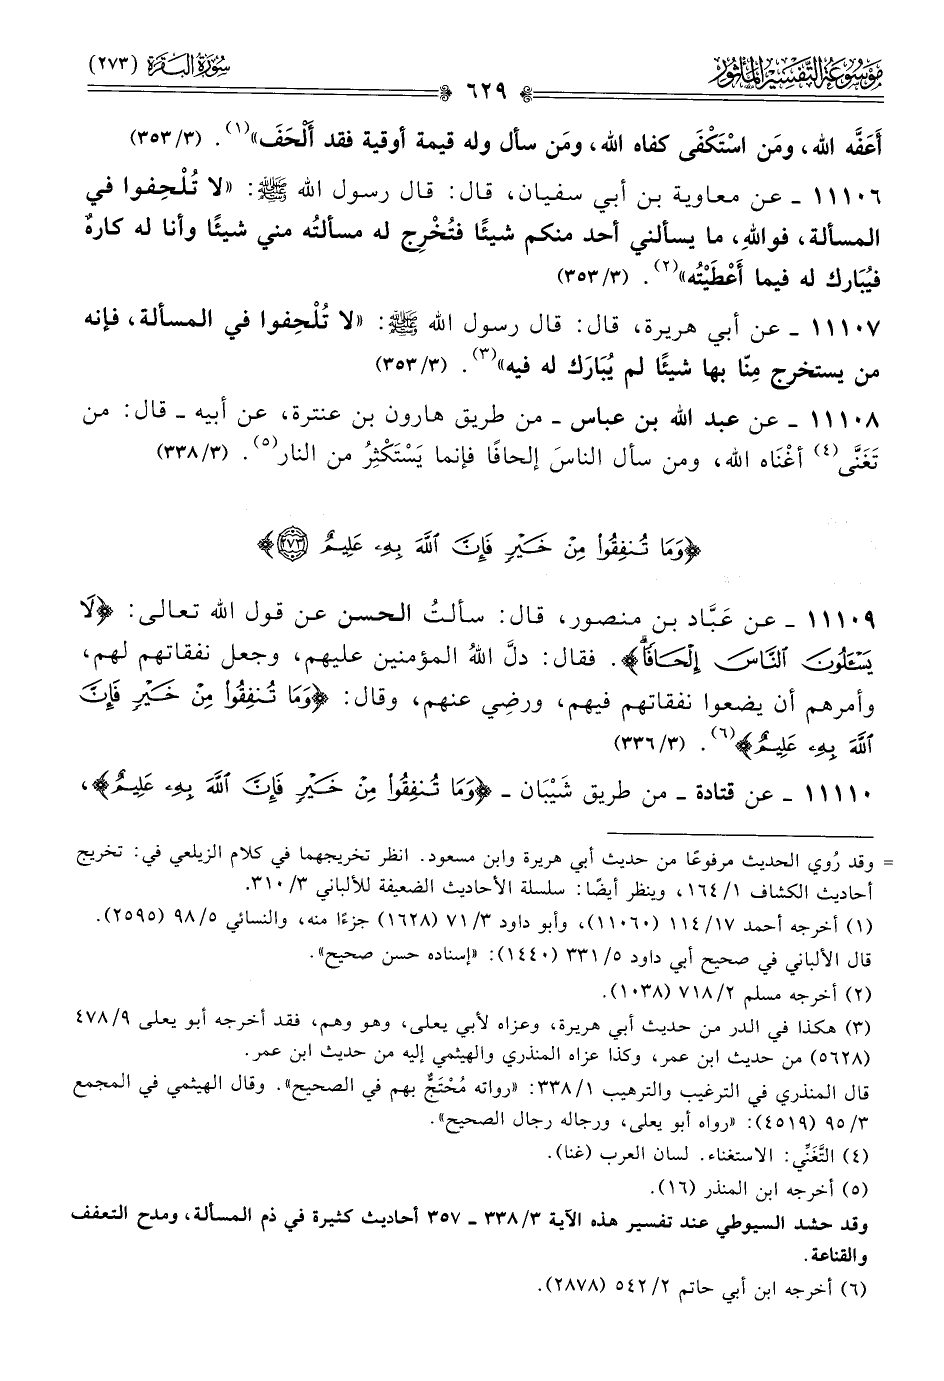 موسوعة التفسير المأثور
سورة البقرة (٢٧٣)
٦٢٩
أَعَفَّه الله، ومَن اسْتَكْفَى كفاه الله، ومَن سأل وله قيمة أوقية فقد أَلْحَفَ»(١). (٣٥٣/٣)
١١١٠٦ ـ عن معاوية بن أبي سفيان، قال: قال رسول الله ﷺ: «لا تُلْحِفوا في
المسألة، فواللهِ، ما يسألني أحد منكم شيئًا فتُخْرِج له مسألتُه مني شيئًا وأنا له كارهٌ
فيُبَارك له فيما أَعْطَيْتُه»(٢). (٣٥٣/٣)
١١١٠٧ ـ عن أبي هريرة، قال: قال رسول الله ﷺ: «لا تُلْحِفوا في المسألة، فإنه
من يستخرج مِنّا بها شيئًا لم يُبَارَك له فيه»(٣). (٣٥٣/٣)
١١١٠٨ ـ عن عبد الله بن عباس ـ من طريق هارون بن عنترة، عن أبيه ـ قال: من
تَغَنَّى(٤) أغْنَاه الله، ومن سأل الناسَ إلحافًا فإنما يَسْتَكْثِرُ من النار(٥). (٣٣٨/٣)
﴿وَمَا تُنفِقُواْ مِنْ خَيْرٍ فَإِنَّ ٱللَّهَ بِهِۦ عَلِيمٌ ٢٧٣﴾
١١١٠٩ ـ عن عَبَّاد بن منصور، قال: سألتُ الحسن عن قول الله تعالى: ﴿لَا
يَسْـَٔلُونَ ٱلنَّاسَ إِلْحَافًاۗ﴾. فقال: دلَّ اللهُ المؤمنين عليهم، وجعل نفقاتهم لهم،
وأمرهم أن يضعوا نفقاتهم فيهم، ورضِي عنهم، وقال: ﴿وَمَا تُنفِقُواْ مِنْ خَيْرٍ فَإِنَّ
ٱللَّهَ بِهِۦ عَلِيمٌ﴾(٦). (٣٣٦/٣)
١١١١٠ ـ عن قتادة ـ من طريق شَيْبَان ـ ﴿وَمَا تُنفِقُواْ مِنْ خَيْرٍ فَإِنَّ ٱللَّهَ بِهِۦ عَلِيمٌ﴾،
= وقد رُوي الحديث مرفوعًا من حديث أبي هريرة وابن مسعود. انظر تخريجهما في كلام الزيلعي في: تخريج
أحاديث الكشاف ١/ ١٦٤، وينظر أيضًا: سلسلة الأحاديث الضعيفة للألباني ٣/ ٣١٠.
(١) أخرجه أحمد ١٧/ ١١٤ (١١٠٦٠)، وأبو داود ٣/ ٧١ (١٦٢٨) جزءًا منه، والنسائي ٥/ ٩٨ (٢٥٩٥).
قال الألباني في صحيح أبي داود ٥/ ٣٣١ (١٤٤٠): «إسناده حسن صحيح».
(٢) أخرجه مسلم ٢/ ٧١٨ (١٠٣٨).
(٣) هكذا في الدر من حديث أبي هريرة، وعزاه لأبي يعلى، وهو وهم، فقد أخرجه أبو يعلى ٩/ ٤٧٨
(٥٦٢٨) من حديث ابن عمر، وكذا عزاه المنذري والهيثمي إليه من حديث ابن عمر.
قال المنذري في الترغيب والترهيب ١/ ٣٣٨: «رواته مُحْتَجٌّ بهم في الصحيح». وقال الهيثمي في المجمع
٣/ ٩٥ (٤٥١٩): «رواه أبو يعلى، ورجاله رجال الصحيح».
(٤) التَّغَنِّي: الاستغناء. لسان العرب (غنا).
(٥) أخرجه ابن المنذر (١٦).
وقد حشد السيوطي عند تفسير هذه الآية ٣/ ٣٣٨ ـ ٣٥٧ أحاديث كثيرة في ذم المسألة، ومدح التعفف
والقناعة.
(٦) أخرجه ابن أبي حاتم ٢/ ٥٤٢ (٢٨٧٨).